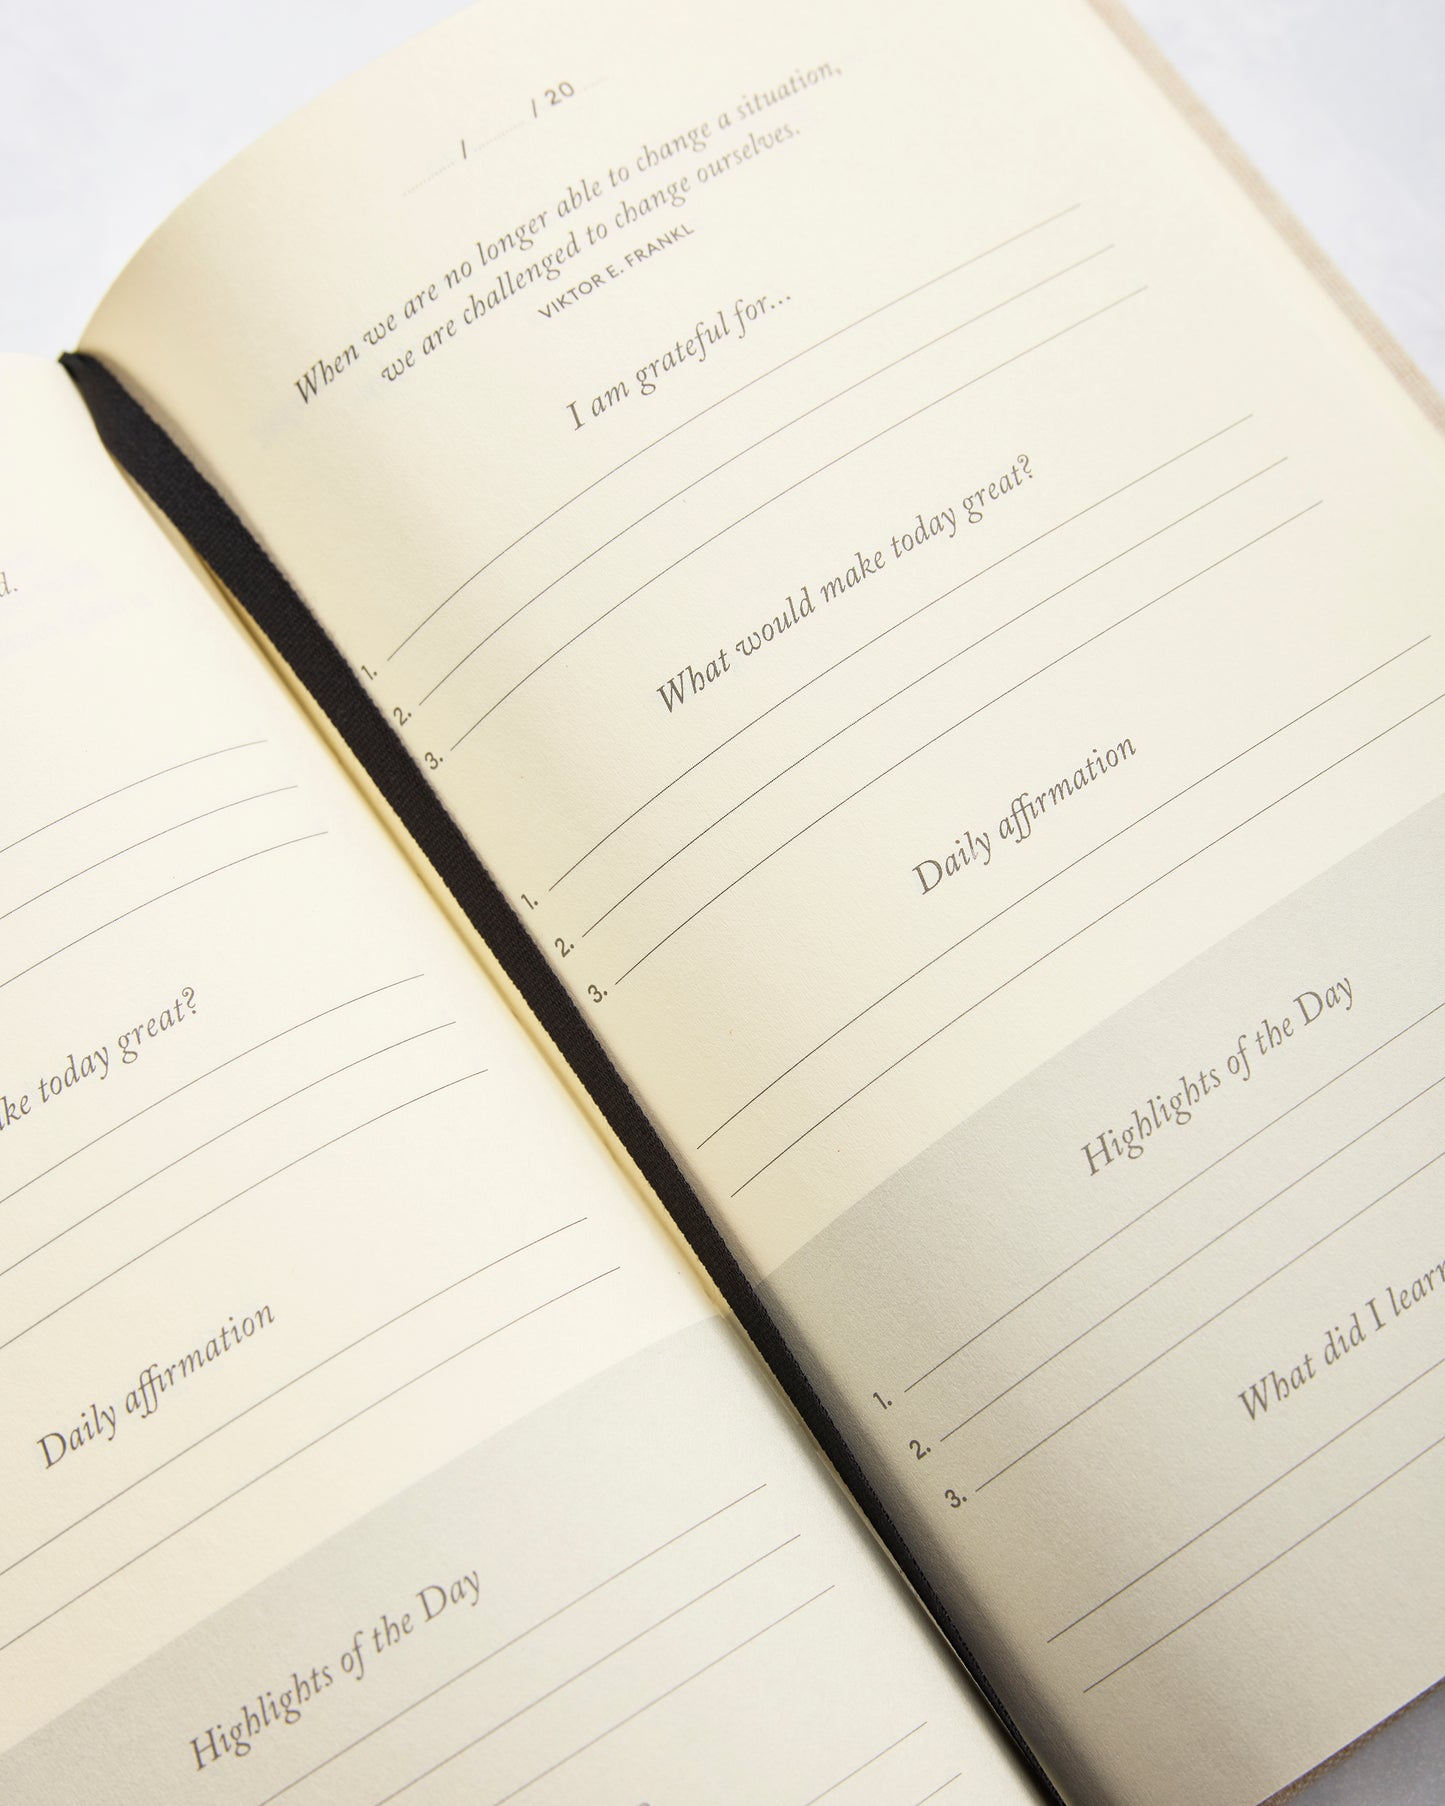 d.
today great?
Daily affirmation
Highlights of the Day
/ / 20
When we are no longer able to change a situation,
we are challenged to change ourselves.
VIKTOR E. FRANKL
I am grateful for...
1.
2.
3.
What would make today great?
1.
2.
3.
Daily affirmation
Highlights of the Day
1.
2.
3.
What did I learn